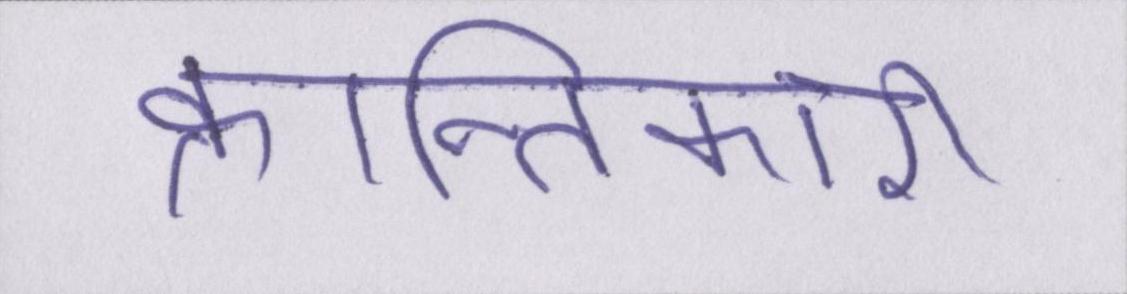 क्रान्तिकारी